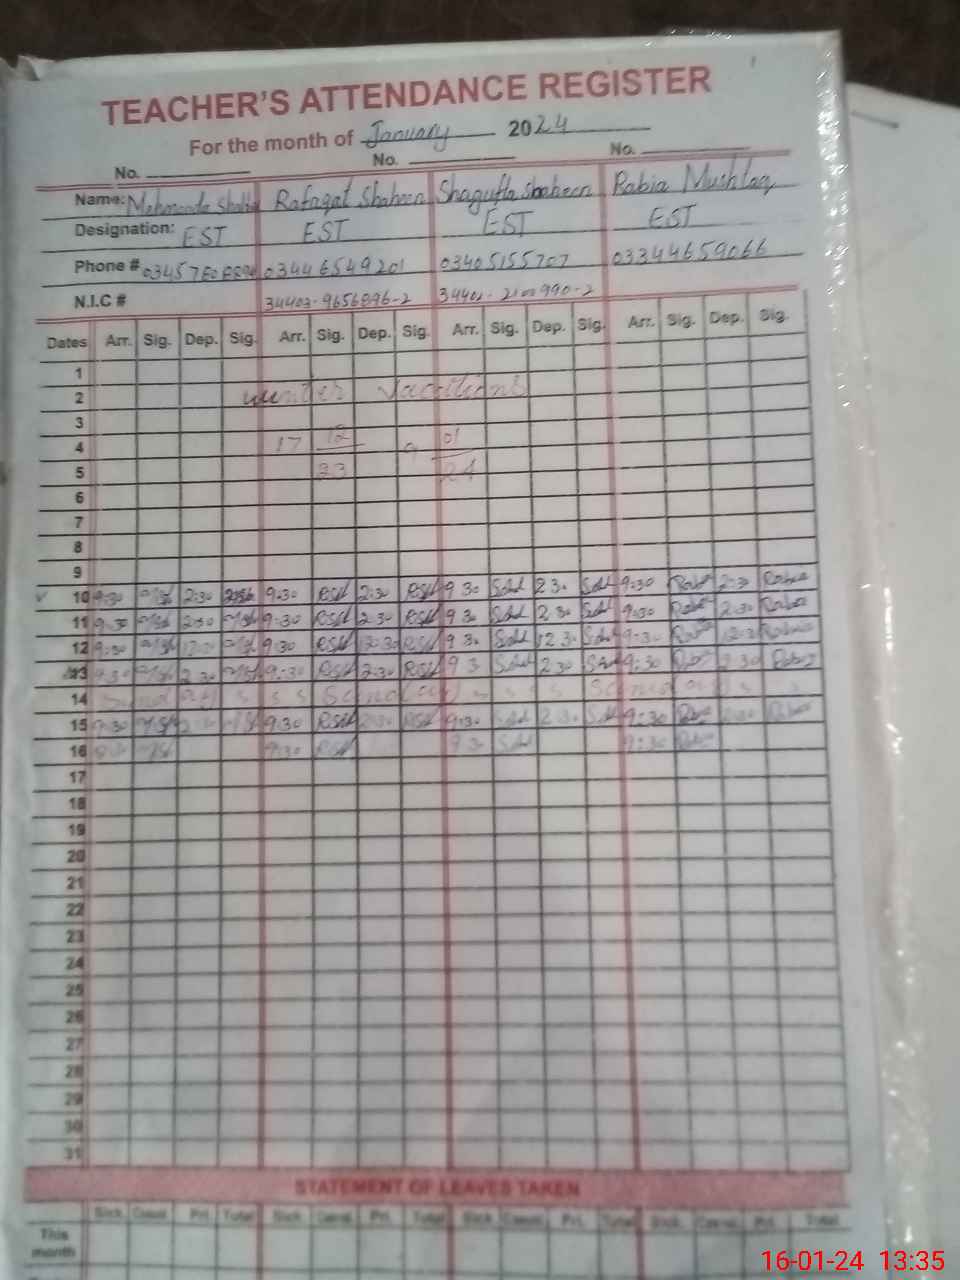 TEACHER'S ATTENDANCE REGISTER
For the month of January 2024
No. No. No.
Name: Rafaqat Shaheen Shagufta Shaheen Rabia Mushtaq
Designation: EST EST EST EST
Phone # 03446549201 03405155707 03344659066
N.I.C # 34403-9656896-2
Dates Arr. Sig. Dep. Sig. Arr. Sig. Dep. Sig. Arr. Sig. Dep. Sig. Arr. Sig. Dep. Sig.
1
2 winter vacations
3
4 17 12 9 01
5 23 24
6
7
8
9
10 9:30 2:30 9:30 RSH 2:30 RSH 9 30 2 30 9:30 Rabia 2:30 Rabia
11 9:30 2:30 9:30 RSH 2:30 RSH 9 30 2 30 9:30 Rabia 2:30 Rabia
12 9:30 9:30 RSH 12:30 RSH 9 30 12 30 9:30 Rabia 12:30 Rabia
13 9:30 2:30 9:30 RSH 2:30 RSH 9 3 2 30 9:30 Rabia 2:30 Rabia
14 Sunday s s s Sunday s s s Sunday s
15 9:30 9:30 RSH 2:30 RSH 9:30 2 30 9:30 Rabia 2:30 Rabia
16 9:30 9:30 RSH 9 3 9:30 Rabia
17
18
19
20
21
22
23
24
25
26
27
28
29
30
31
STATEMENT OF LEAVES TAKEN
Sick Casual Pri. Total Sick Casual Pri. Total Sick Casual Pri. Total Sick Casual Pri. Total
This
month
16-01-24 13:35